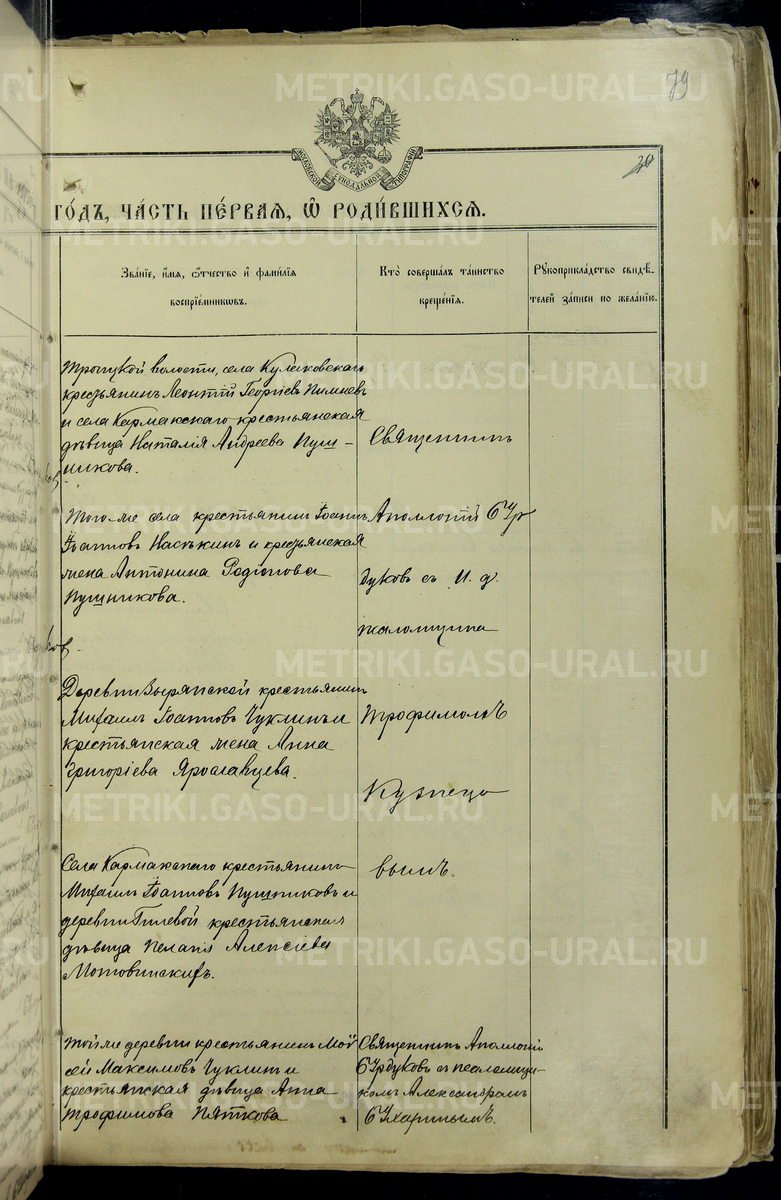 79
30
МОСКОВСКОЙ СѴНОДАЛЬНОЙ ТИПОГРАФІИ
ГО́ДЪ, ЧА́СТЬ ПЕ́РВАЯ, Ѽ РОДИ́ВШИХСѦ.
Зва́нїе, и҆́мѧ, ѻ҆́тчество и҆ фами́лїѧ
воспрїе́мникѡвъ.
Кто̀ соверша́лъ та́инство
креще́нїѧ.
Рꙋкоприкла́дство свидѣ́-
телей за́писи по жела́нїю.
Троицкой волости, села Кулаковскаго
крестьянинъ Леонтій Георгіевъ Пимневъ
и села Кармакскаго крестьянская
дѣвица Наталія Андреева Пуш-
никова.
Священникъ
Того-же села крестьянинъ Іоаннъ
Іоанновъ Наськинъ и крестьянская
жена Антонина Родіонова
Пушникова.
Аполлоній Бур
дуковъ съ И. д.
псаломщика
Деревни Зырянской крестьянинъ
Михаилъ Іоанновъ Чуклинъ и
крестьянская жена Анна
Григоріева Ярославцева.
Трофимомъ
Кузнецо
вымъ.
Села Кармакскаго крестьянинъ
Михаилъ Іоанновъ Пушниковъ и
деревни Гилевой крестьянская
дѣвица Пелагія Алексіева
Мотовинскихъ.
Той же деревни крестьянинъ Мой
сей Максимовъ Чуклинъ и
крестьянская дѣвица Анна
Трофимова Пяткова
Священникъ Аполлоній
Бурдуковъ съ псаломщи-
комъ Александромъ
Бухаринымъ.
METRIKI.GASO-URAL.RU